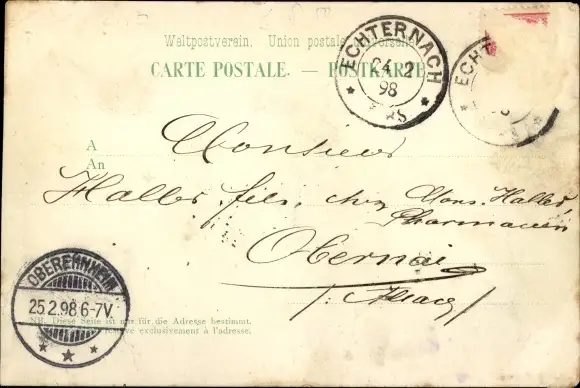 Weltpostverein. Union postale universelle
CARTE POSTALE. — POSTKARTE
ECHTERNACH
24 2
98
ECHT
A
An
Monsieur
Haller fils, chez Mons. Haller,
Pharmacien
Obernai
/: Alsace /
OBEREHNHEIM
25.2.98.6-7V.
NB. Diese Seite ist nur für die Adresse bestimmt.
réservé exclusivement à l'adresse.